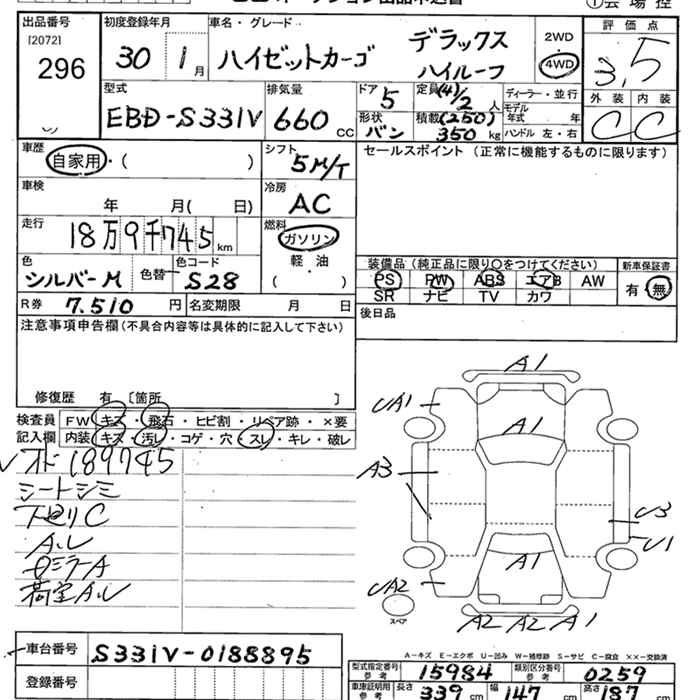 ① 会場控
出品番号 初度登録年月 車名・グレード 評価点
[2072] 296 30 1月 ハイゼットカーゴ デラックス ハイルーフ 2WD 4WD 3.5
型式 排気量 ドア 定員 (4)/2人 ディーラー・並行 外装 内装
EBD-S331V 660CC 5 モデル年式 年 C C
形状 バン 積載 (250) 350kg ハンドル 左・右
車歴 自家用・( ) シフト 5M/T セールスポイント (正常に機能するものに限ります)
車検 年 月( 日) 冷房 AC
走行 18万9千745km 燃料 ガソリン 軽・油 ( )
色 シルバーM 色替 色コード S28
装備品 (純正品に限り○をつけてください) 新車保証書
PS PW ABS エアB AW 有・無
SR ナビ TV カワ
R券 7.510円 名変期限 月 日 後日品
注意事項申告欄(不具合内容等は具体的に記入して下さい)
修復歴 有 [箇所 ]
検査員 FW キズ・飛石・ヒビ割・リペア跡・×要
記入欄 内装 キズ・汚レ・コゲ・穴・スレ・キレ・破レ
189745
シートシミ
A.U
A1
UA1
A1
A3
U3
U1
A1
UA2
スペア
A2 A2 A1
A-キズ E-エクボ U-凹み W-補修跡 S-サビ C-腐食 ××-交換済
車台番号 S331V-0188895
登録番号
型式指定番号 参考 15984 類別区分番号 参考 0259
車庫証明用 参考 長さ 339cm 幅 147cm 高さ 187cm